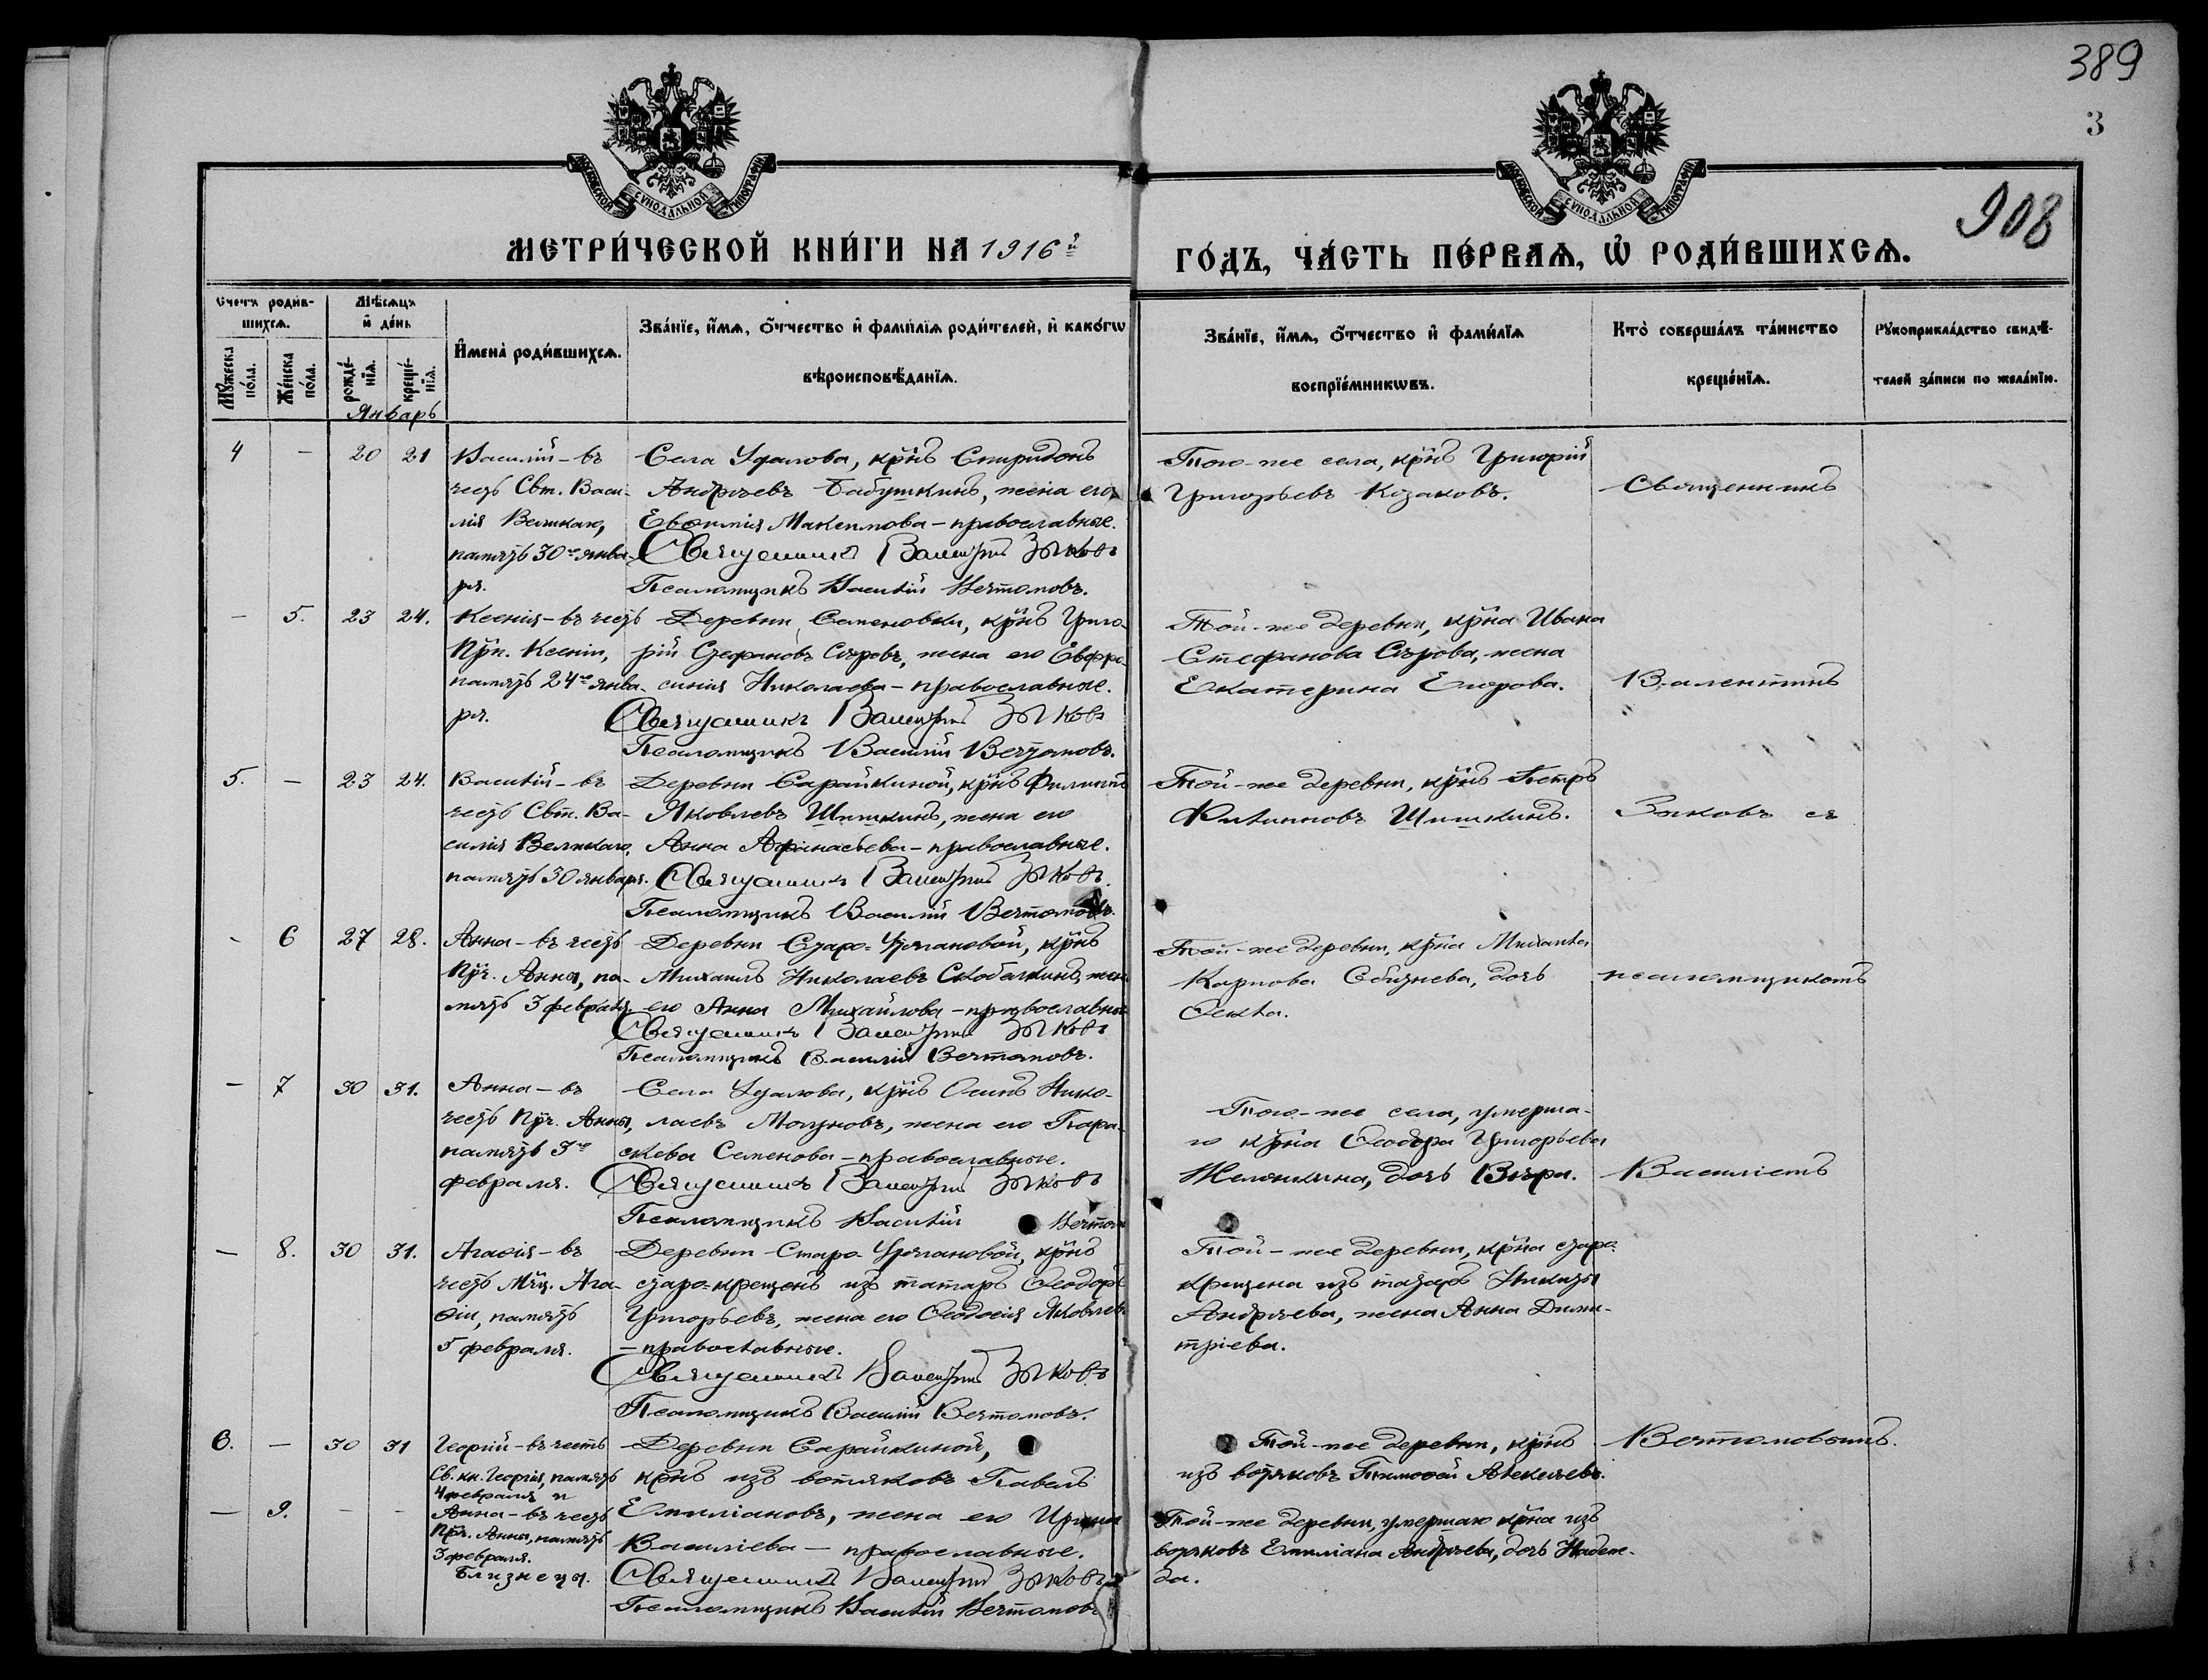 389
3
908
МОСКОВСКОЙ СѴНОДАЛЬНОЙ ТИПОГРАФІИ
МОСКОВСКОЙ СѴНОДАЛЬНОЙ ТИПОГРАФІИ
МЕТРИ́ЧЕСКОЙ КНИ́ГИ НА 1916й
ГО́ДЪ, ЧА́СТЬ ПЕ́РВАѦ, Ѽ РОДИ́ВШИХСѦ.
Счетъ роди́в-
шихсѧ.
Мꙋ́жеска по́ла.
Же́нска по́ла.
Мѣ́сѧцъ
и҆ де́нь
рожде́-нїѧ.
креще́-нїѧ.
И҆мена̀ роди́вшихсѧ.
Зва́нїе, и҆́мѧ, ѻ҆́тчество и҆ фами́лїѧ роди́телей, и҆ како́гѡ
вѣроисповѣ́данїѧ.
Зва́нїе, и҆́мѧ, ѻ҆́тчество и҆ фами́лїѧ
воспрїе́мникѡвъ.
Кто̀ соверша́лъ та́инство
креще́нїѧ.
Рꙋкоприкла́дство свидѣ́-
телей за́писи по жела́нїю.
Январь
4 — 20 21
Василій – въ
честь Свт. Васи-
лія Великаго,
память 30го янва-
ря.
Села Удалова, крнъ Спиридонъ
Андреевъ Бабушкинъ, жена его
Евѳимія Максимова – православные.
Священникъ Валентинъ Зыковъ
Псаломщикъ Василій Вечтомовъ.
Того-же села, крнъ Григорій
Григорьевъ Козаковъ.
Священникъ
— 5. 23 24.
Ксенія – въ честь
Прп. Ксеніи,
память 24го янва-
ря.
Деревни Семеновки, крнъ Григо-
рій Стефановъ Сѣровъ, жена его Евфро-
синія Николаева – православные.
Священникъ Валентинъ Зыковъ
Псаломщикъ Василій Вечтомовъ.
Той-же деревни, крна Ивана
Стефанова Сѣрова, жена
Екатерина Егорова.
Валентинъ
5. — 23 24
Василій – въ
честь Свт. Ва-
силія Великаго,
память 30 января.
Деревни Сарайкиной, крнъ Филиппъ
Яковлевъ Шишкинъ, жена его
Анна Афанасьева – православные.
Священникъ Валентинъ Зыковъ
Псаломщикъ Василій Вечтомовъ.
Той-же деревни, крнъ Петръ
Филипповъ Шишкинъ.
Зыковъ съ
- 6 27 28.
Анна – въ честь
Прч. Анны, па-
мять 3 февраля.
Михаилъ Николаевъ Скобелкинъ, жена
его Анна Михайлова – православные
Священникъ Валентинъ Зыковъ
Псаломщикъ Василій Вечтомовъ.
Той-же деревни, крна Михаила
Карпова дочь
Ѳекла.
псаломщикомъ
— 7 30 31.
Анна – въ
честь Прч. Анны,
память 3го
февраля.
Села Удалова, крнъ Осипъ Нико-
лаевъ жена его Пара-
скева Семенова – православные.
Священникъ Валентинъ Зыковъ
Псаломщикъ Василій Вечтомовъ
Того-же села, умерша-
го крна Ѳеодора Григорьева
дочь Вѣра.
Василіемъ
— 8. 30 31.
Агаѳія – въ
честь Мчц. Ага-
ѳіи, память
5 февраля.
старо-крещенъ изъ татаръ Ѳеодоръ
Григорьевъ, жена его Ѳеодосія Яковлева
– православные.
Священникъ Валентинъ Зыковъ
Псаломщикъ Василій Вечтомовъ.
Той-же деревни, крна старо-
крещена изъ татаръ Никиты
Андреева, жена Анна Дими-
тріева.
6. — 30 31
Георгій – въ честь
Св. кн. Георгія, память
4 февраля и
Деревни Сарайкиной,
крнъ изъ вотяковъ Павелъ
Емиліановъ, жена его Ирина
Василіева – православные.
Священникъ Валентинъ Зыковъ
Псаломщикъ Василій Вечтомовъ
Той-же деревни, крнъ
изъ вотяковъ Тимоѳей Алексѣевъ.
Вечтомовымъ.
— 9. - -
Анна – въ честь
Прч. Анны, память
3 февраля.
Близнецы.
Той-же деревни, умершаго крна изъ
вотяковъ Емиліана Андреева, дочь Надеж-
да.